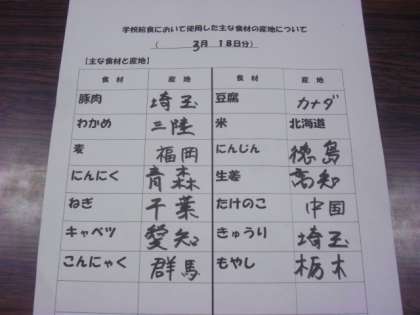 学校給食において使用した主な食材の産地について
( 3月 18日分)
【主な食材と産地】
食材 産地 食材 産地
豚肉 埼玉 豆腐 カナダ
わかめ 三陸 米 北海道
麦 福岡 にんじん 徳島
にんにく 青森 生姜 高知
ねぎ 千葉 たけのこ 中国
キャベツ 愛知 きゅうり 埼玉
こんにゃく 群馬 もやし 栃木